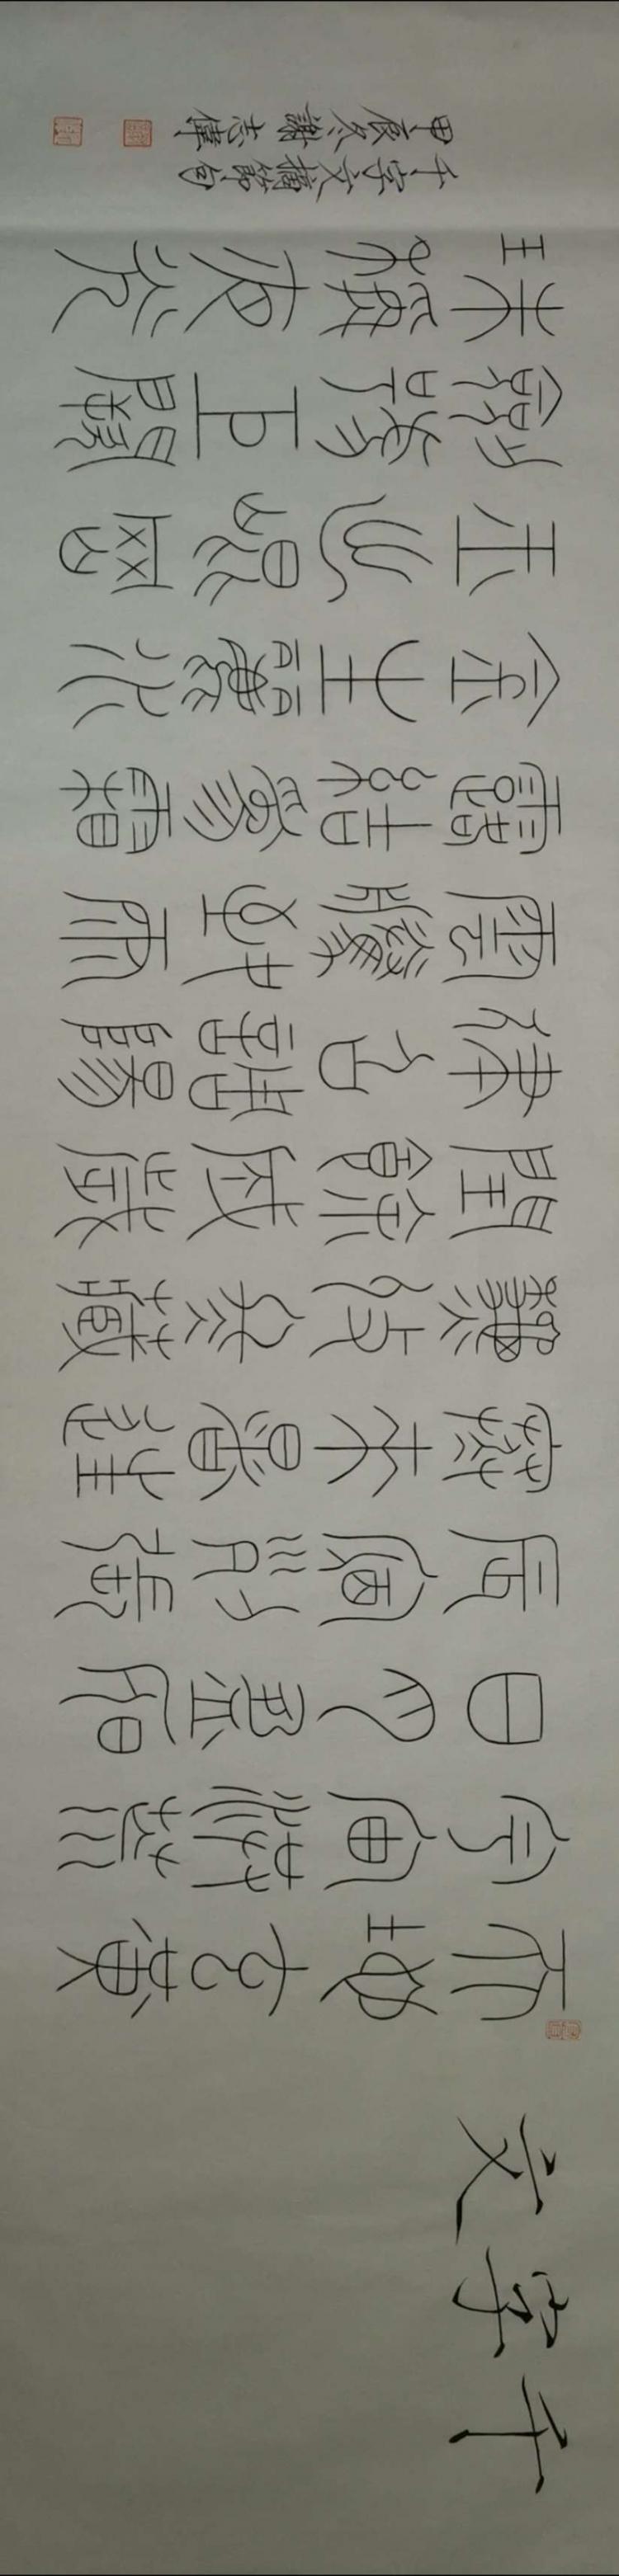 千字文
天地玄黃
宇宙洪荒
日月盈昃
辰宿列張
寒來暑往
秋收冬藏
閏餘成歲
律呂調陽
雲騰致雨
露結爲霜
金生麗水
玉出崑岡
劍號巨闕
珠稱夜光
千字文摘節句
甲辰冬謝志偉